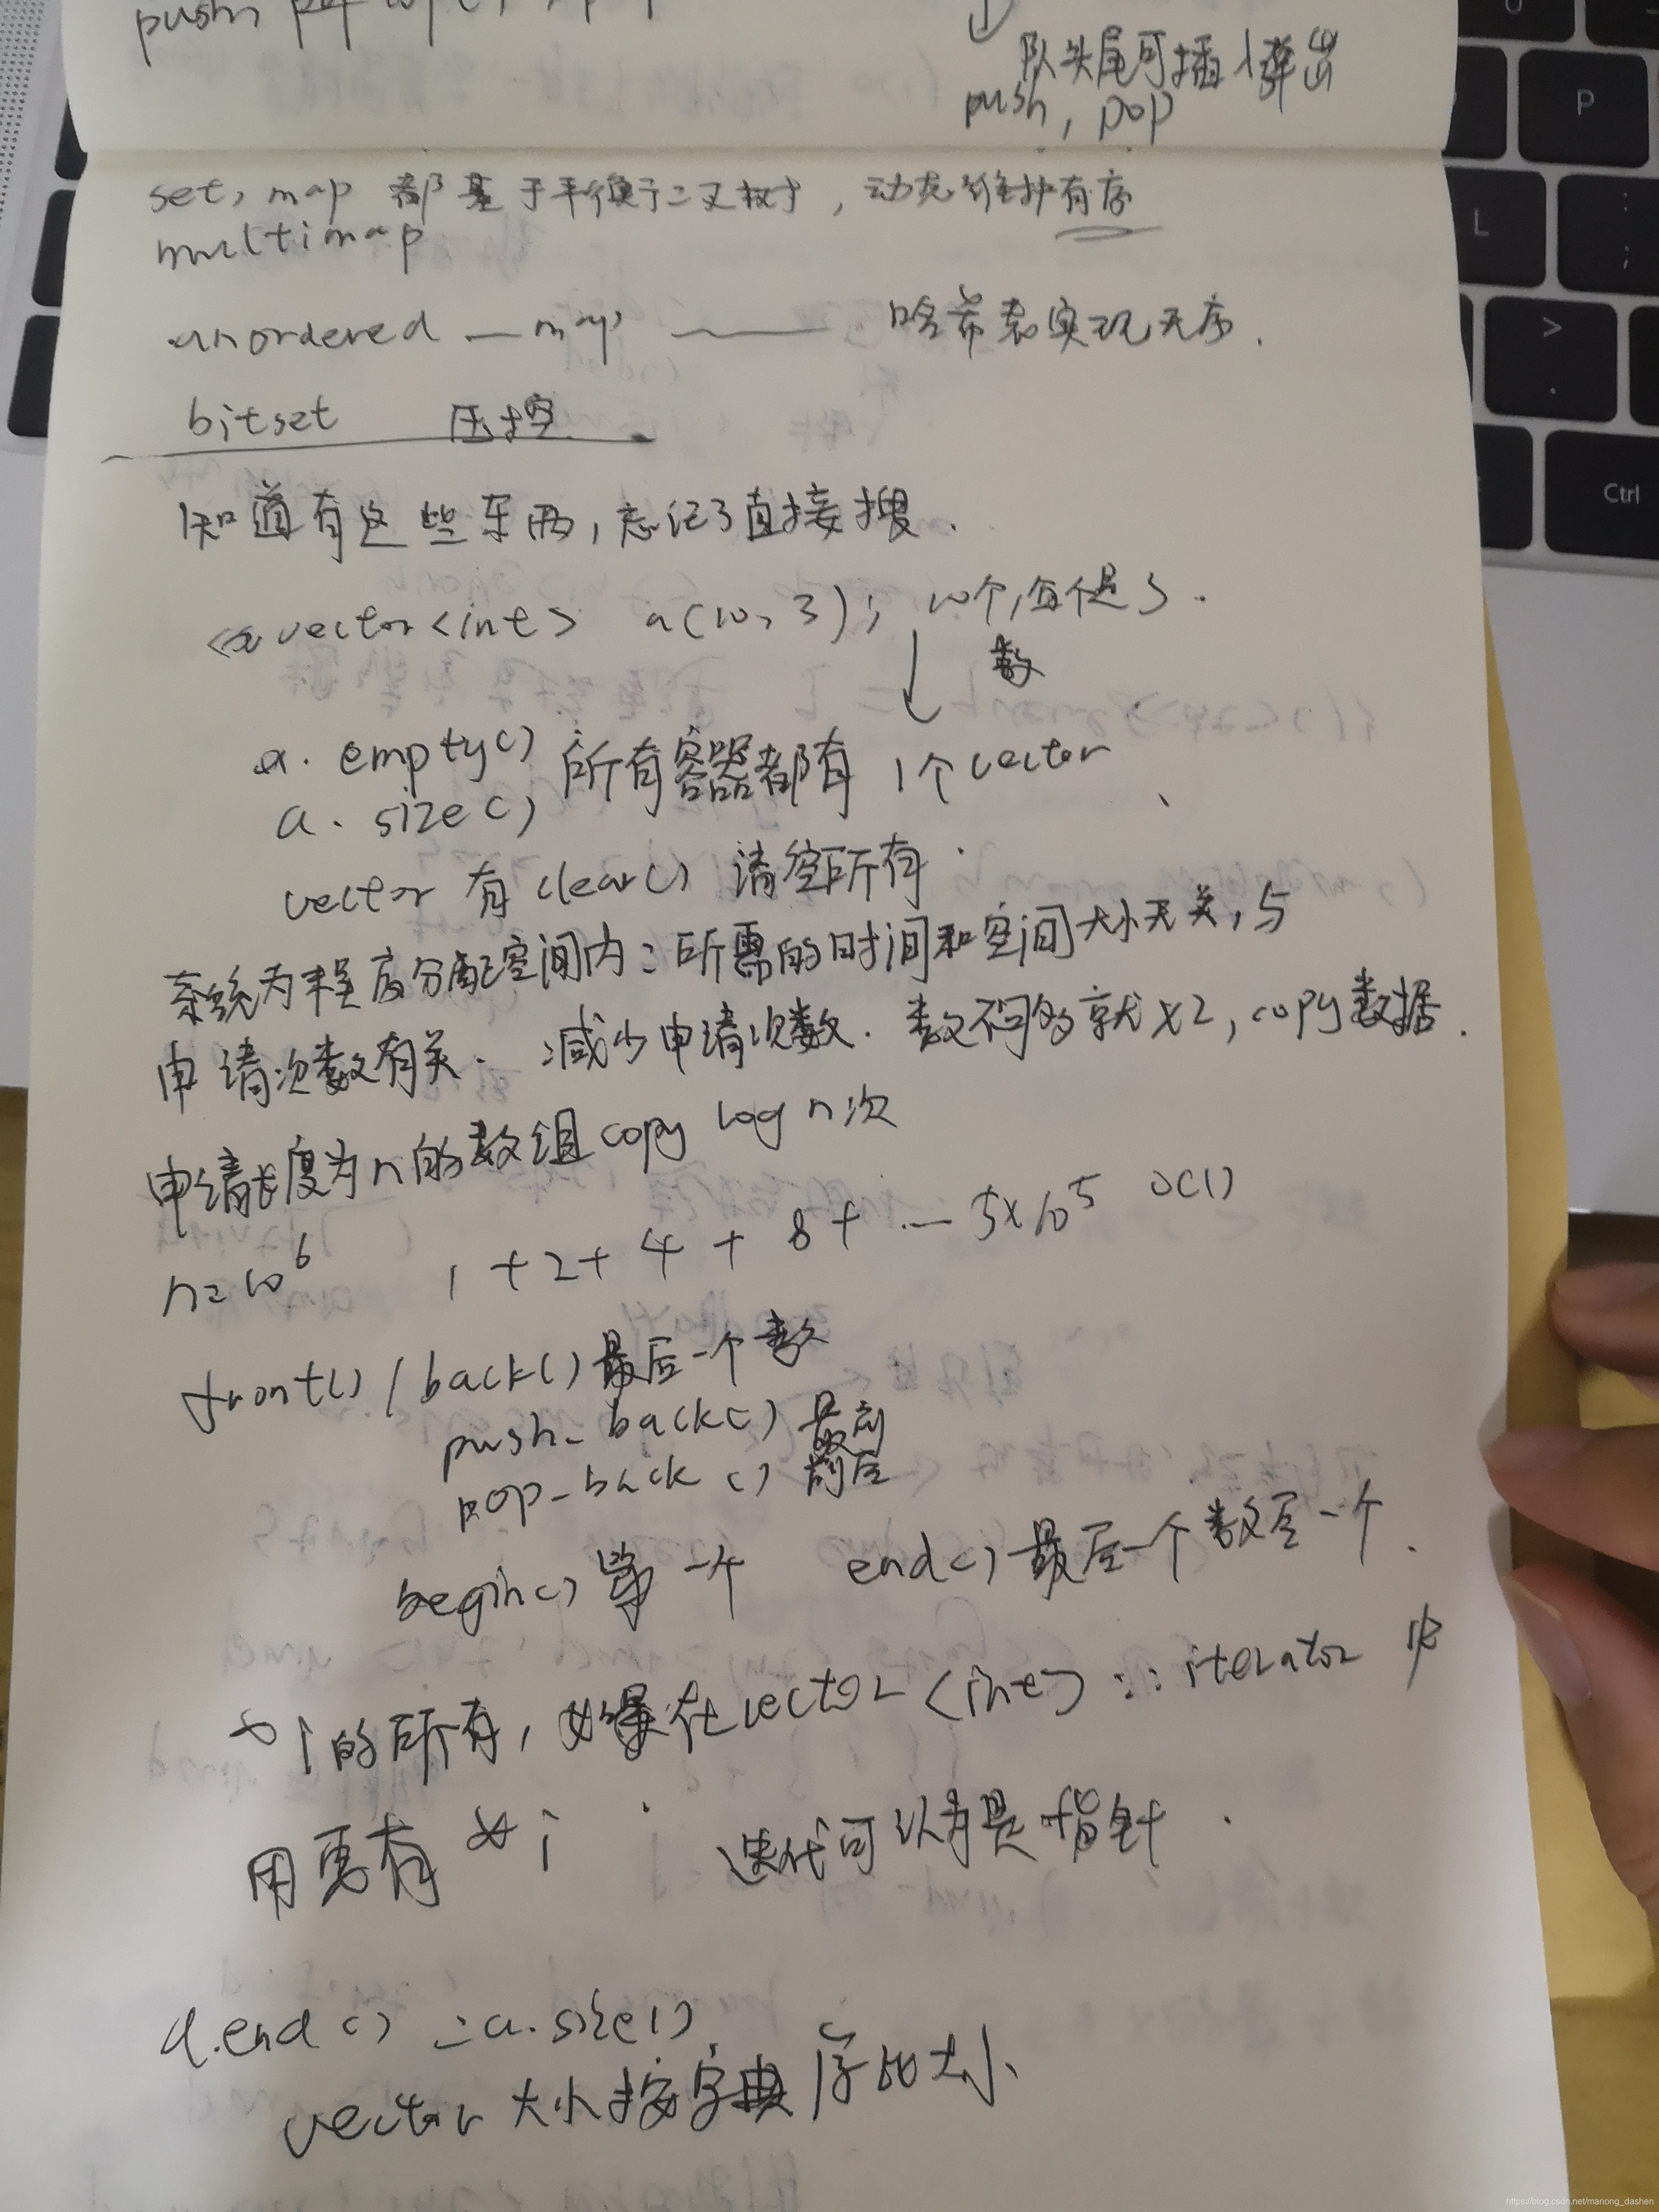 push,
队头尾可插、弹出
push, pop
set, map 都基于平衡二叉树, 动态维护有序
multimap
unordered_map —— 哈希表实现无序.
bitset 压
知道有这些东西, 忘记了直接搜.
vector<int> a(10, 3); 10个, 每个是3.
数
a.empty() 所有容器都有 1个vector
a.size()
vector 有clear() 清空所有.
系统为程序分配空间内: 所需的时间和空间大小无关, 与
申请次数有关. 减少申请次数. 数不够就x2, copy数据.
申请长度为n的数组copy log n次
n=10^6 1+2+4+8+...5x10^5 O(1)
front()/back()最后一个数
push_back() 最
pop_back()
begin()第一个 end()最后一个数后一个.
*i的所有, 如果在vector<int>::iterator 中
用要有 *i 迭代可以为是指针.
a.end() = a.size()
vector 大小按字典序比大小
https://blog.csdn.net/manong_dashen